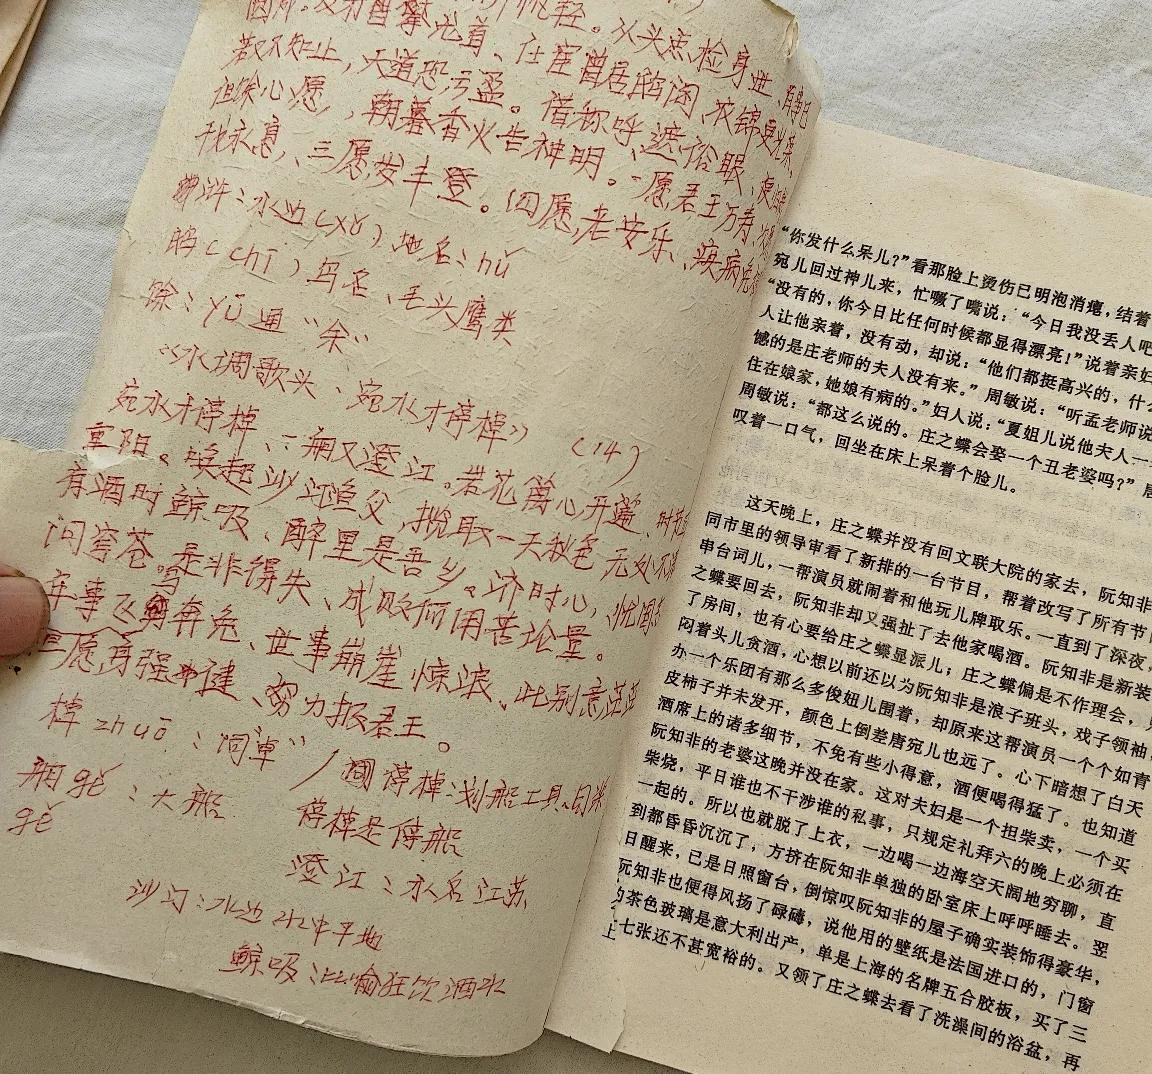 从头点检身世
若不知止,天道恐亏盈。借称呼,遮俗眼
但馀心愿,朝暮香火告神明。一愿君王万寿
三愿岁丰登。四愿老安乐、疾病
浒:水边(xǔ)地名:hǔ
鸱(chī)鸟名、毛头鹰类
馀:yú通“余”
《水调歌头、宛水才停棹》(14)
宛水才停棹、一舸又澄江。若花篱心开遍、时
重阳。唤起沙汀渔父,揽取一天秋色 无处不
有酒时鲸吸、醉里是吾乡。济时心,忧国
问穹苍、是非得失、成败何用苦论量。
年事飞乌奔兔、世事崩崖惊浪、此别意茫茫
但愿身强健、努力报君王。
棹zhuō:同“桌”/停棹:划船工具。
舸gě:大船 停棹是停船
gě 澄江:水名江苏
沙汀:水边水中平地
鲸吸:比喻狂饮酒水
“你发什么呆儿?”看那脸上烫伤已明泡消瘪,结着
宛儿回过神儿来,忙噘了嘴说:“今日我没丢人吧
“没有的,你今日比任何时候都显得漂亮!”说着亲妇
人让他亲着,没有动,却说:“他们都挺高兴的,什么
憾的是庄老师的夫人没有来。”周敏说:“听孟老师说
住在娘家,她娘有病的。”妇人说:“夏姐儿说他夫人一
周敏说:“都这么说的。庄之蝶会娶一个丑老婆吗?”
叹着一口气,回坐在床上呆着个脸儿。
这天晚上,庄之蝶并没有回文联大院的家去,阮知非
同市里的领导审看了新排的一台节目,帮着改写了所有节
串台词儿,一帮演员就闹着和他玩儿牌取乐。一直到了深夜,
之蝶要回去,阮知非却又强扯了去他家喝酒。阮知非是新装
了房间,也有心要给庄之蝶显派儿;庄之蝶偏是不作理会,
闷着头儿贪酒,心想以前还以为阮知非是浪子班头,戏子领袖,
办一个乐团有那么多俊妞儿围着,却原来这帮演员一个个如青
皮柿子并未发开,颜色上倒差唐宛儿也远了。心下暗想了白天
酒席上的诸多细节,不免有些小得意,酒便喝得猛了。也知道
阮知非的老婆这晚并没在家。这对夫妇是一个担柴卖,一个买
柴烧,平日谁也不干涉谁的私事,只规定礼拜六的晚上必须在
一起的。所以也就脱了上衣,一边喝一边海空天阔地穷聊,直
到都昏昏沉沉了,方挤在阮知非单独的卧室床上呼呼睡去。翌
日醒来,已是日照窗台,倒惊叹阮知非的屋子确实装饰得豪华,
阮知非也便得风扬了碌碡,说他用的壁纸是法国进口的,门窗
的茶色玻璃是意大利出产,单是上海的名牌五合胶板,买了三
七张还不甚宽裕的。又领了庄之蝶去看了洗澡间的浴盆,再